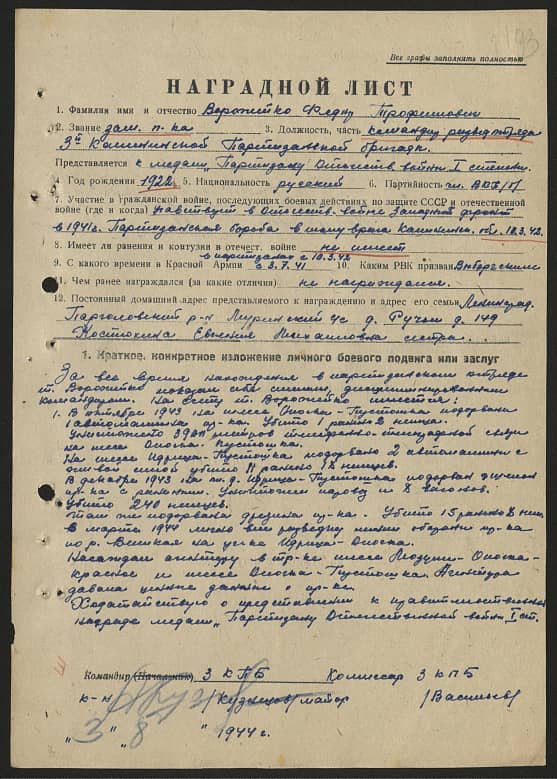 193
Все графы заполнять полностью
НАГРАДНОЙ ЛИСТ
1. Фамилия имя и отчество Ворожейко Федор Трофимович
2. Звание зам. п-ка 3. Должность, часть командир разведотряда
3й Калининской Партизанской бригады.
Представляется к медали „Партизану Отечеств. войны" I степени.
4. Год рождения 1922 5. Национальность русский 6. Партийность чл. ВЛКСМ
7. Участие в гражданской войне, последующих боевых действиях по защите СССР и отечественной
войне (где и когда) Участвует в Отечеств. войне Западный фронт
в 1941г. Партизанская борьба в тылу врага Калининск. обл. 10.3.42.
8. Имеет ли ранения и контузии в отечест. войне не имеет
в партизанах с 10.3.42
9. С какого времени в Красной Армии с 3.7.41 10. Каким РВК призван Выборгским
11. Чем ранее награждался (за какие отличия) не награждался.
12. Постоянный домашний адрес представляемого к награждению и адрес его семьи Ленинград.
Парголовский р-н с/с д. Ручьи д. 149
Костюхина Евгения Михайловна сестра.
1. Краткое, конкретное изложение личного боевого подвига или заслуг
За все время нахождения в партизанском отряде
т. Ворожейко показал себя смелым, дисциплинированным
командиром. На счету т. Ворожейко имеется:
1. В октябре 1943 на шоссе Опочка - Пустошка подорвана
1 автомашина пр-ка. Убито 1 ранено 2 немца.
Уничтожено метров телефонно-телеграфной связи
на шоссе Опочка - Пустошка.
На шоссе Идрица - Пустошка подорвано 2 автомашины с
живой силой убито 11 ранено 18 немцев.
В декабре 1943 на ж.д. Идрица - Пустошка подорвал эшелон
пр-ка с Уничтожен паровоз и 8 вагонов.
Убито 240 немцев.
Там же подорвана дрезина пр-ка. Убито 15 ранено 8 нем.
В марте 1944 лично вел разведку линии обороны пр-ка
по р. Великая на уч-ке Идрица - Опочка.
Насаждал агентуру в тр-ке шоссе - Опочка -
Красное и шоссе Опочка - Пустошка. Агентура
давала ценные данные о пр-ке.
Ходатайствую о представлении к правительственной
награде медали „Партизану Отечественной войны" I ст.
Командир (Начальник) 3 КПБ Комиссар 3 КПБ
к-н /Кузнецов/ майор /Васильев/
„3" 8 1944 г.